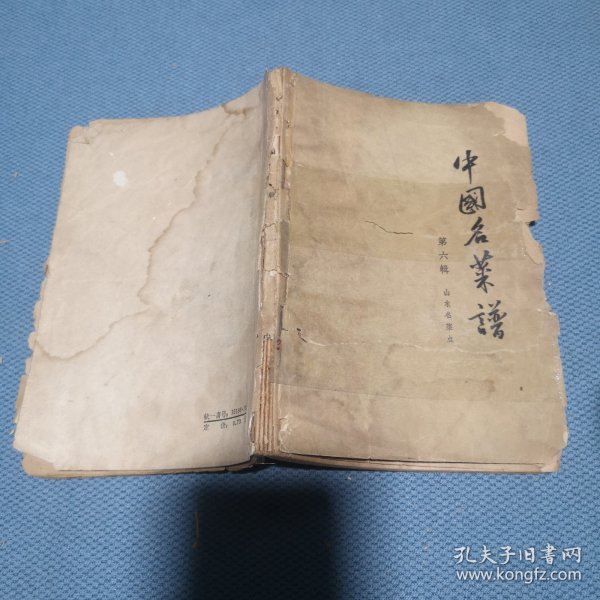 中國名菜譜
第六辑
山东名菜点
统一书号:
定价: 0.75
孔夫子旧書网
www.kongfz.com